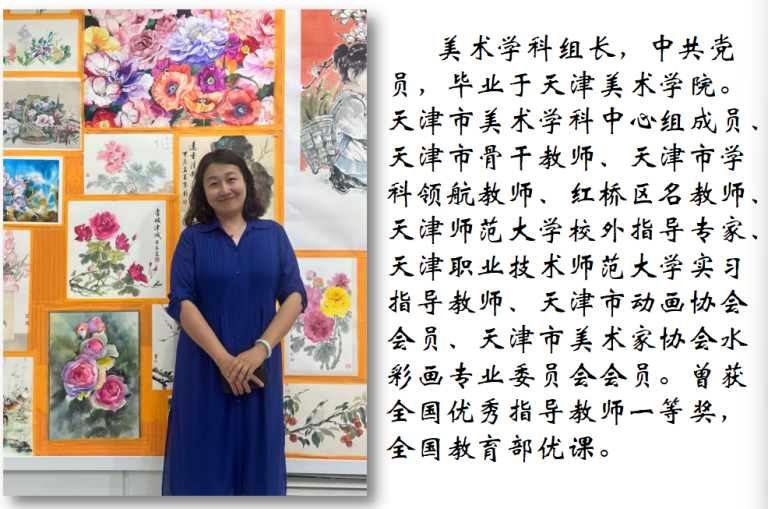 美术学科组长，中共党
员，毕业于天津美术学院。
天津市美术学科中心组成员、
天津市骨干教师、天津市学
科领航教师、红桥区名教师、
天津师范大学校外指导专家、
天津职业技术师范大学实习
指导教师、天津市动画协会
会员、天津市美术家协会水
彩画专业委员会会员。曾获
全国优秀指导教师一等奖，
全国教育部优课。